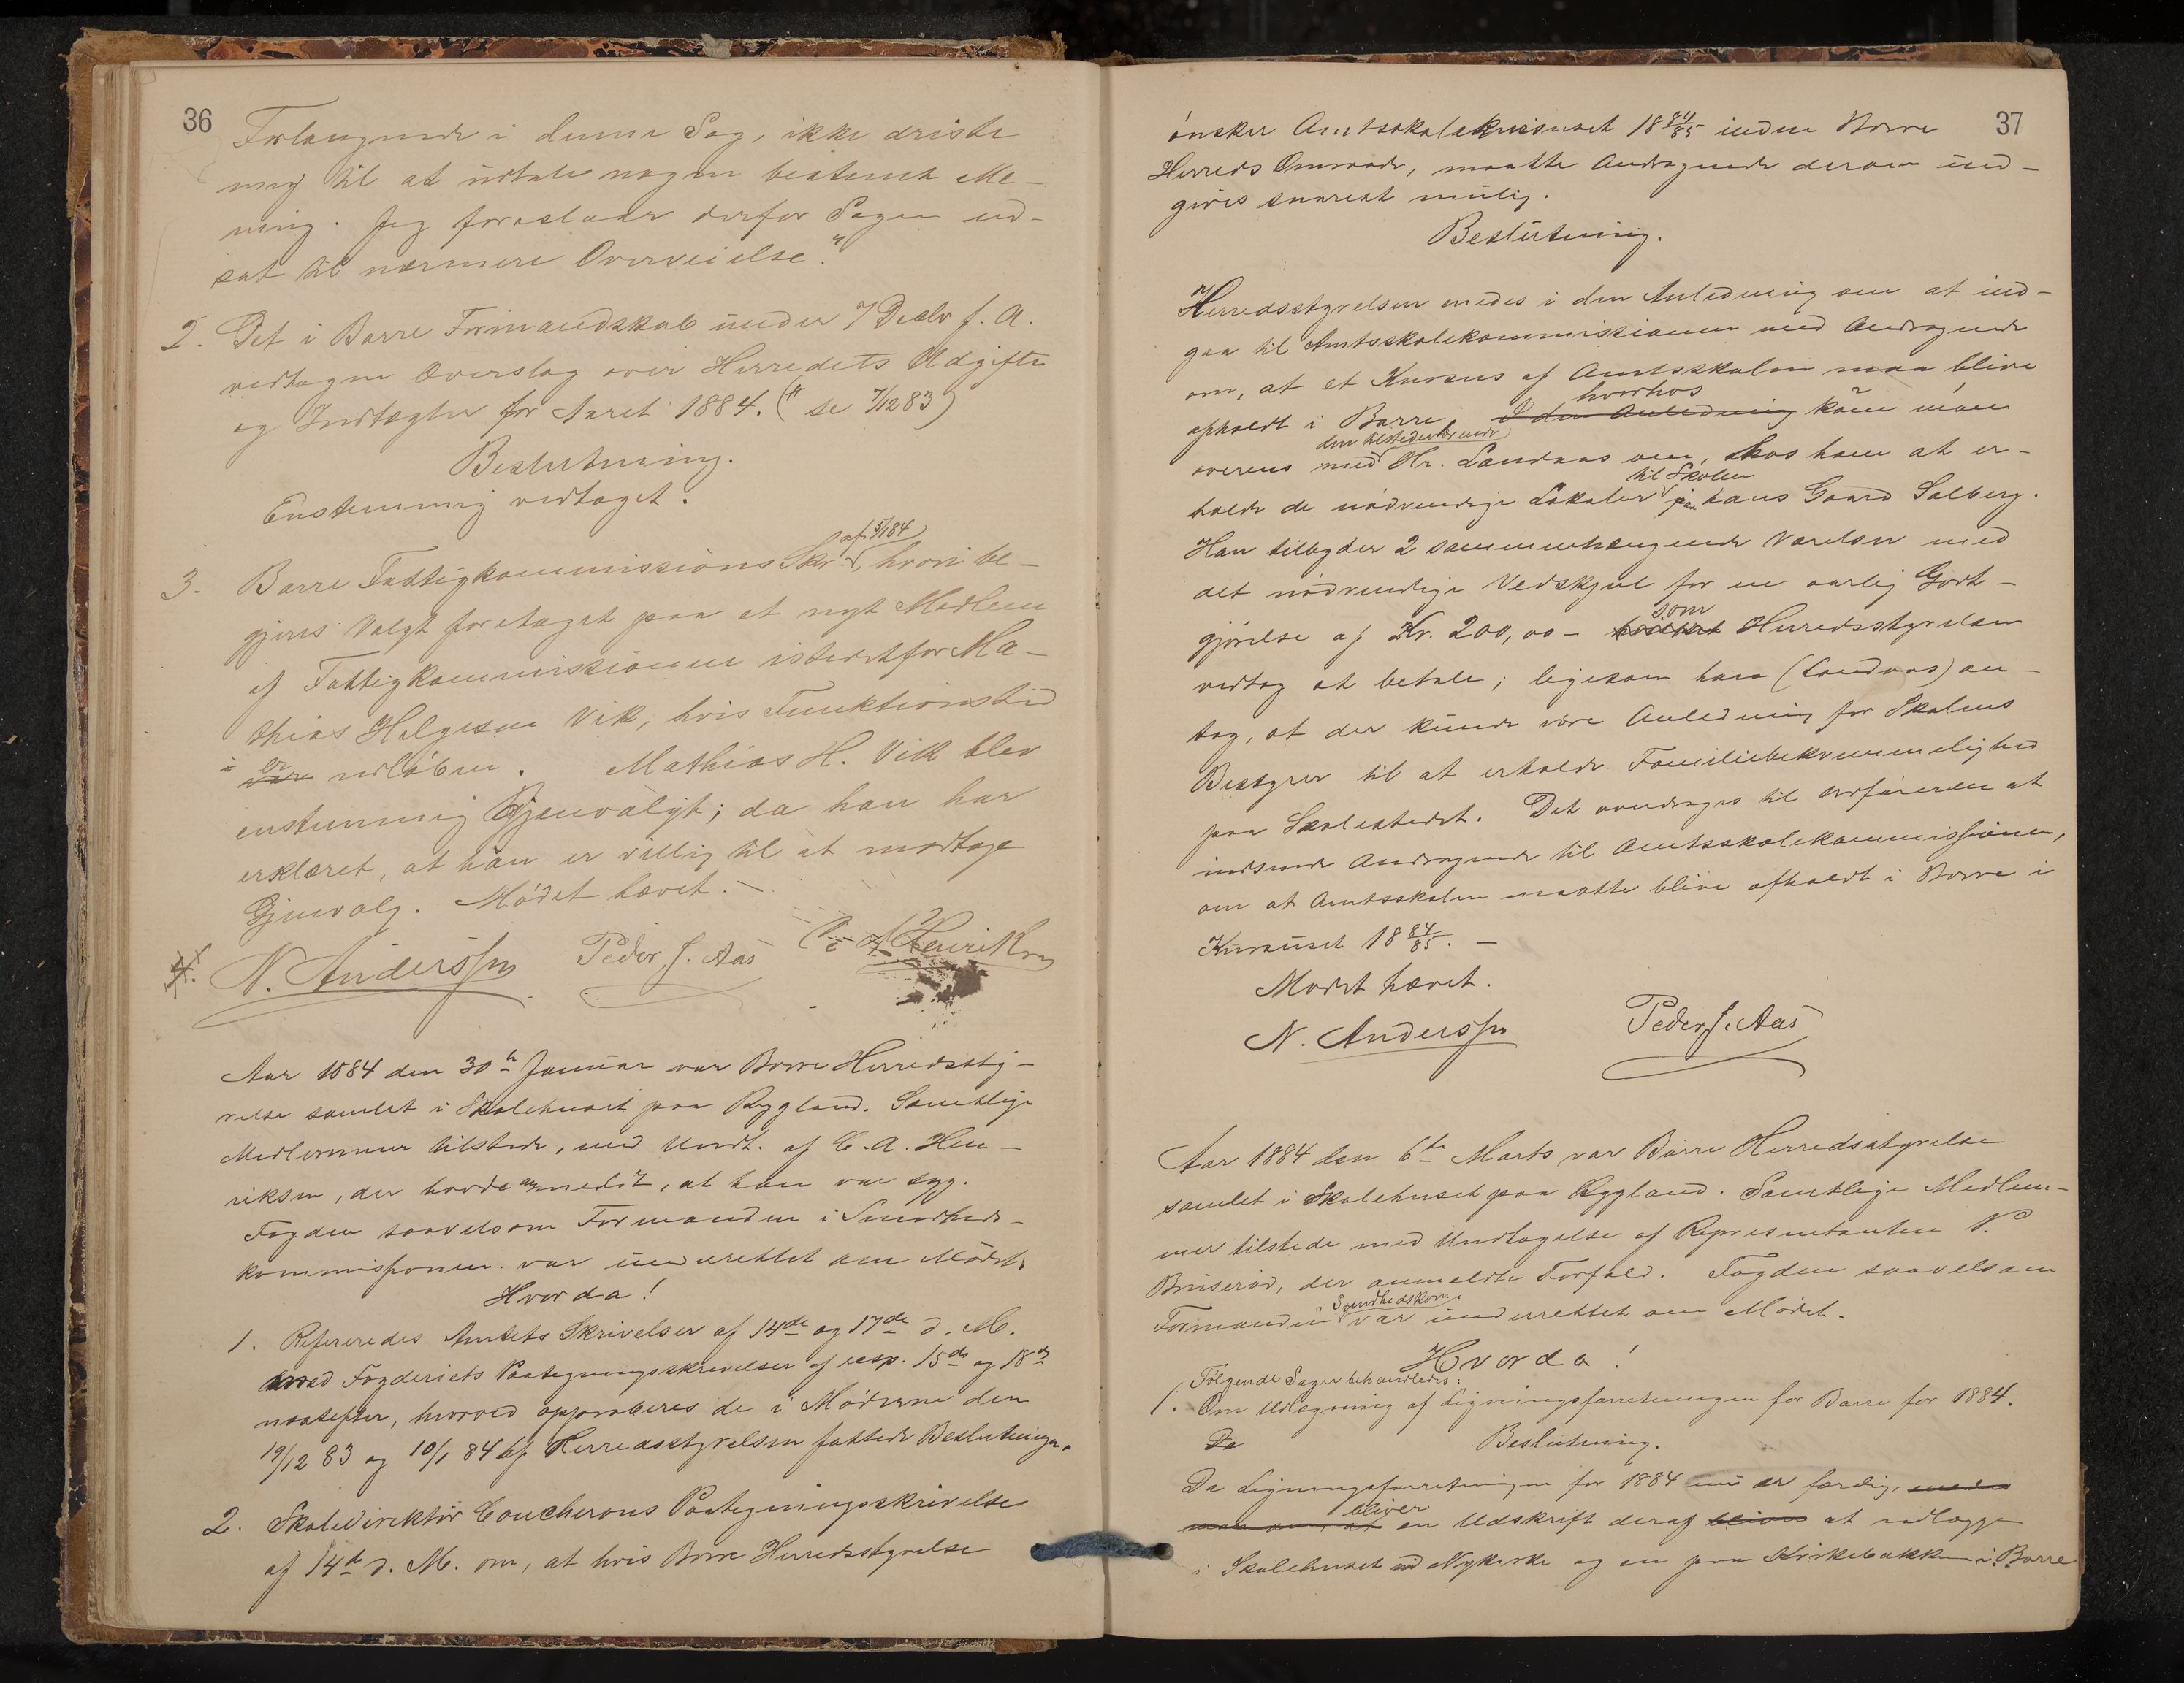 36
Forlangende i denne Sag, ikke driste
mig til at udtale nogen bestemt Me-
ning. Jeg foreslaar derfor Sagen ud-
sat til nærmere Overveielse."
2. Det i Borre Formandskab under 7 Decbr f. A.
vedtagne Overslag over Herredets Udgifter
og Indtægter for Aaret 1884. (se 7/12 83)
Beslutning.
Enstemmig vedtaget.
af 5/1 84
3. Borre Fattigkommissions Skr., hvori be-
gjæres Valgt foretaget paa et nyt Medlem
af Fattigkommissionen istedetfor Ma-
thias Helgesen Vik, hvis Funktionstid
er
var udløben. Mathias H. Vik blev
enstemmig Gjenvalgt; da han har
erklæret, at han er villig til at modtage
Gjenvalg. Mødet hævet. –
4. N. Anderssen Peder J. Aas C. A. Henriksen
Aar 1884 den 30te Januar var Borre Herredssty-
relse samlet i Skolehuset paa Rygland. Samtlige
Medlemmer tilstede, med Undt. af C. A. Hen-
riksen, der havde anmeldt, at han var syg.
Fogden saavelsom Formanden i Sundheds-
kommissionen var underrettet om Mødet.
Hvorda!
1. Refereredes Amtets Skrivelser af 14de og 17de d. M.
med Fogderiets Paategningsskrivelser af resp. 15de og 18de
næstefter, hvorved approberes de i Møderne den
19/12 83 og 10/1 84 af Herredsstyrelsen fattede Beslutninger.
2. Skoledirektør Coucherons Paategningsskrivelse
af 14de d. M. om, at hvis Borre Herredsstyrelse
37
ønsker Amtsskolekursuset 18 84/85 inden Borre
Herreds Omraade, maatte Andragende derom ind-
gives snarest mulig.
Beslutning.
Herredsstyrelsen enedes i den Anledning om at ind-
gaa til Amtsskolekommissionen med Andragende
om, at et Kursus af Amtsskolen maa blive
hvorhos
afholdt i Borre, I den Anledning kom man
den tilstedeværende
overens med Hr. Landaas om, hos ham at er-
til Skolen
holde de nødvendige Lokaler paa hans Gaard Solberg.
Han tilbyder 2 sammenhængende Værelser med
det nødvendige Vedskjul for en aarlig Godt-
som
gjørelse af Kr. 200,00 – hvilket Herredsstyrelsen
vedtog at betale; ligesom han (Landaas) an-
tog, at der kunde være Anledning for Skolens
Bestyrer til at erholde Familiebekvemmelighed
paa Skolestedet. Det overdrages til Ordføreren at
indsende Andragende til Amtsskolekommissionen,
om at Amtsskolen maatte blive afholdt i Borre i
Kursuset 18 84/85. –
Mødet hævet.
N. Anderssen Peder J. Aas
Aar 1884 den 6te Marts var Borre Herredsstyrelse
samlet i Skolehuset paa Rygland. Samtlige Medlem-
mer tilstede med Undtagelse af Repræsentanten N.
Bruserød, der anmeldte Forfald. Fogden saavelsom
i Sundhedskom.
Formanden var underrettet om Mødet.
Hvorda!
Følgende Sager behandledes:
1. Om Udlægning af Ligningsforretningen for Borre for 1884.
Da Beslutning.
Da Ligningsforretningen for 1884 nu er færdig, enedes
bliver
man om, at en Udskrift deraf blive at udlægge
i Skolehuset ved Nykirke og en paa Kirkebakken i Borre